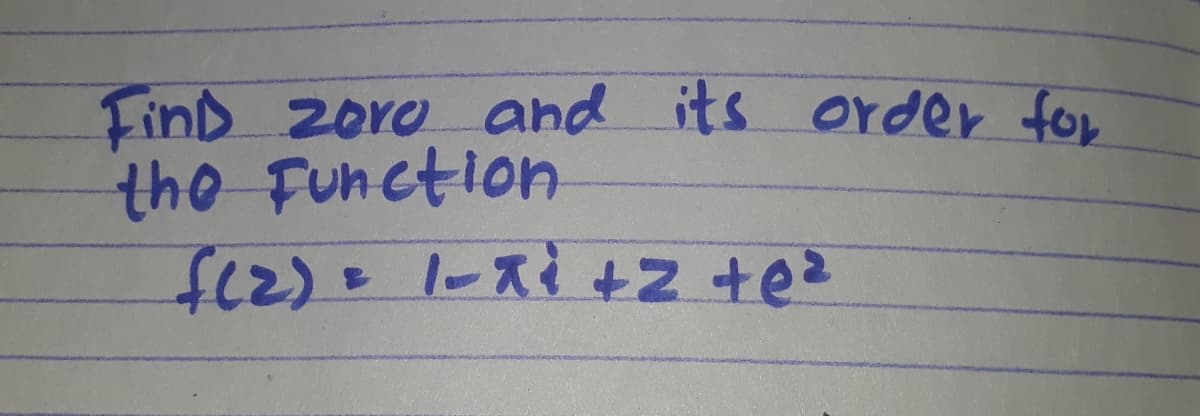 FinD zero and its order for
the Function
f(z) = 1-πi +z +e^z